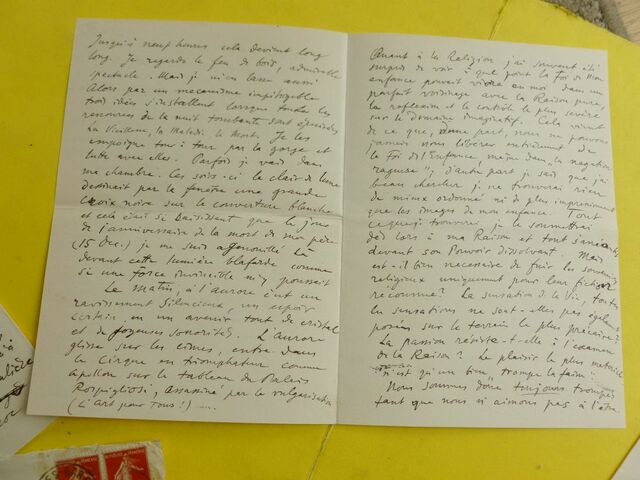 Jusqu'à neuf heures cela devient long
long. Je regarde le feu de bois, admirable
spectacle. Mais je m'en lasse aussi
Alors par un mécanisme impitoyable
trois idées s'installent lorsque toutes les
ressources de la nuit tombante sont épuisées
La Vieillesse, la Maladie, la Mort. Je les
empoigne tour à tour par la gorge et
lutte avec elles. Parfois je vais dans
ma chambre. Ces soirs-ci le clair de lune
dessinait par la fenêtre une grande
Croix noire sur la couverture blanche
et cela était si saisissant que le jour
de l'anniversaire de la mort de mon père
(15 Dec.) je me suis agenouillé là
devant cette lumière blafarde comme
si une force invincible m'y poussait
Le matin, à l'aurore c'est un
ravissement silencieux, un espoir
certain en un avenir tout de cristal
et de joyeuses sonorités. L'aurore
glisse sur les cimes, entre dans
le Cirque en triomphateur comme
Apollon sur le tableau du Palais
Rospigliosi, assassiné par la vulgarisation
(L'Art pour Tous!) ....
Quant à la Religion j'ai souvent été
surpris de voir à quel point la Foi de mon
enfance pouvait vivre en moi dans un
parfait voisinage avec la Raison pure,
la réflexion et le contrôle le plus sévère
sur le domaine imaginatif. Cela vient
de ce que, d'une part, nous ne pouvons
jamais nous libérer entièrement de
la Foi de l'Enfance, même dans la négation
rageuse; d'autre part je sais que j'ai
beau chercher je ne trouverai rien
de mieux ordonné ni de plus impressionnant
que les images de mon enfance. Tout
ce que je trouverai je le soumettrai
dès lors à ma Raison et tout s'
devant son Pouvoir dissolvant. Mais
est-il bien nécessaire de fuir les souvenirs
religieux uniquement pour leur fiction
reconnue? La sensation de la Vie, toutes
les sensations ne sont-elles pas également
posées sur le terrain le plus précaire?
La passion résiste-t-elle à l'examen
de la Raison? Le plaisir le plus matériel
n'est qu'un bien trompe la faim.
Nous sommes donc toujours trompés
tant que nous n'aimons pas à l'être.